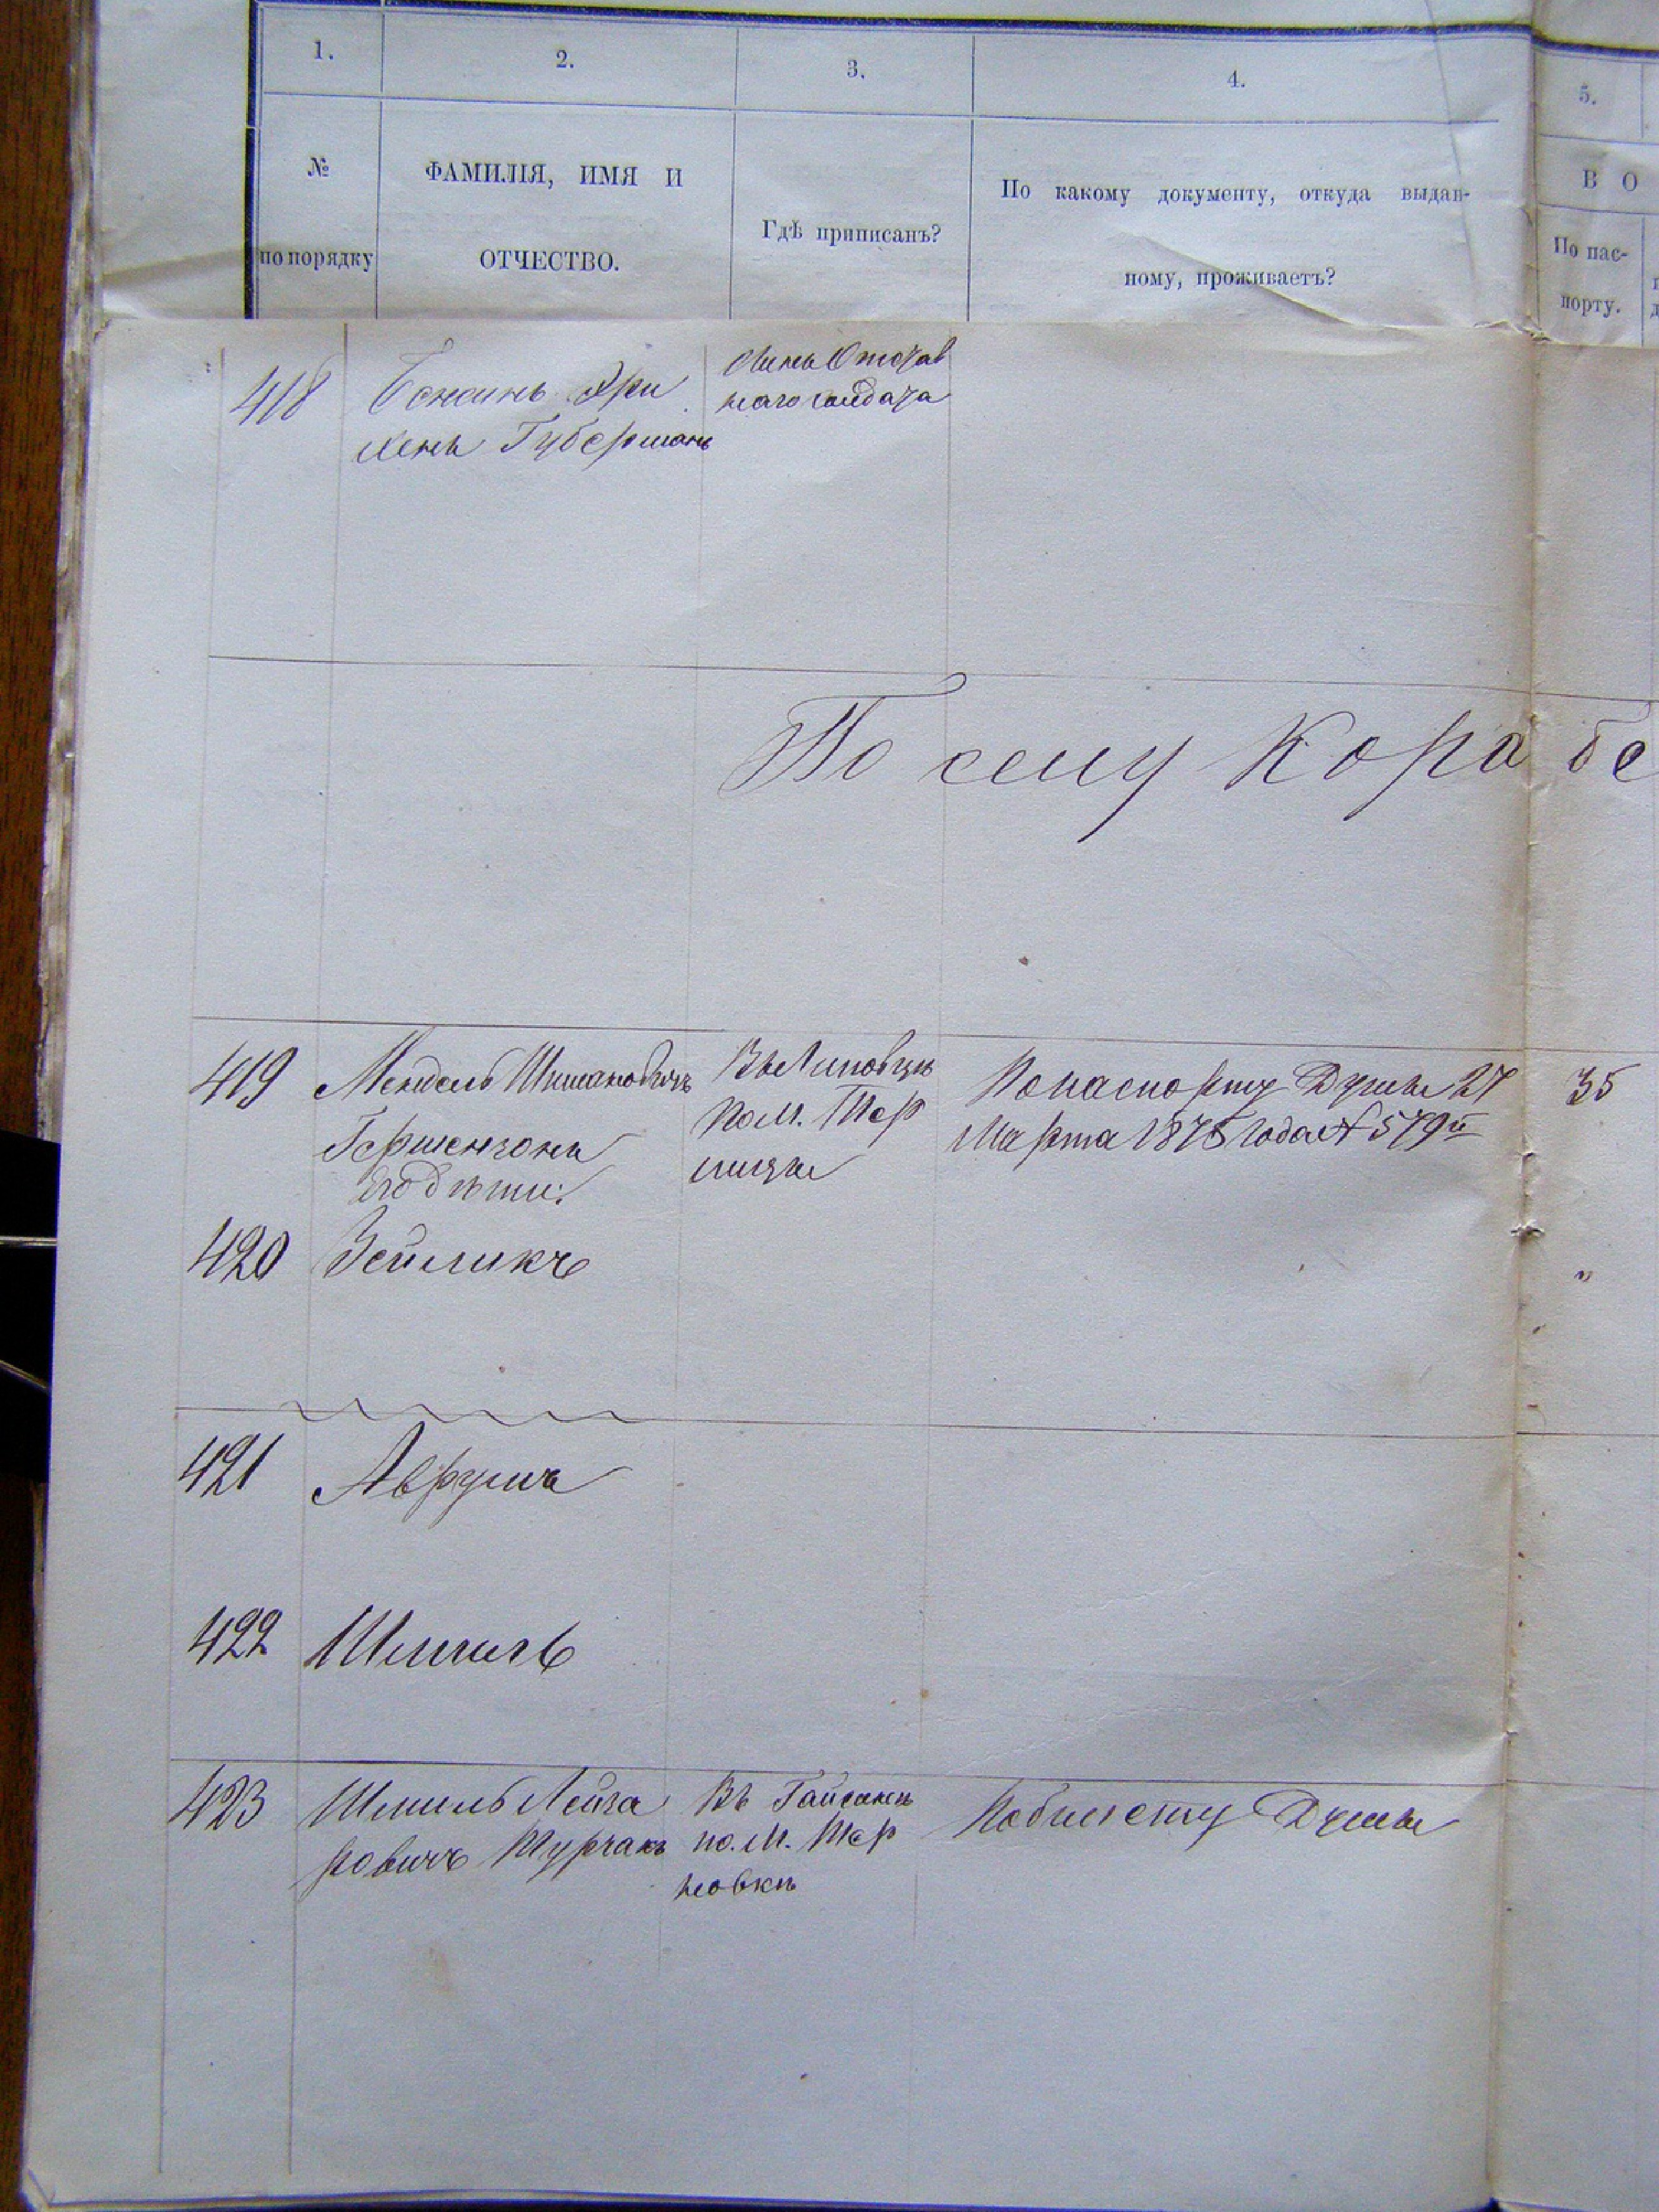 1.
2.
3.
4.
5.
№
по порядку
ФАМИЛІЯ, ИМЯ И
ОТЧЕСТВО.
Гдѣ приписанъ?
По какому документу, откуда выдан-
ному, проживаетъ?
В О
По пас-
порту.
418
Губерманъ
Отстав
наго солдата
По селу Корабе
419
Мендель Шимановичъ
Гершензонъ
его дѣти:
Въ Липовцѣ
по М.
По паспорту Думы 27
Марта 1875 года № 579й
35
420
Зейликъ
"
421
Аврумъ
422
Шмиль
423
Шмиль Лейза
ровичъ Турчакъ
Въ Гайсинѣ
по М. Тер
новкѣ
По билету Думы